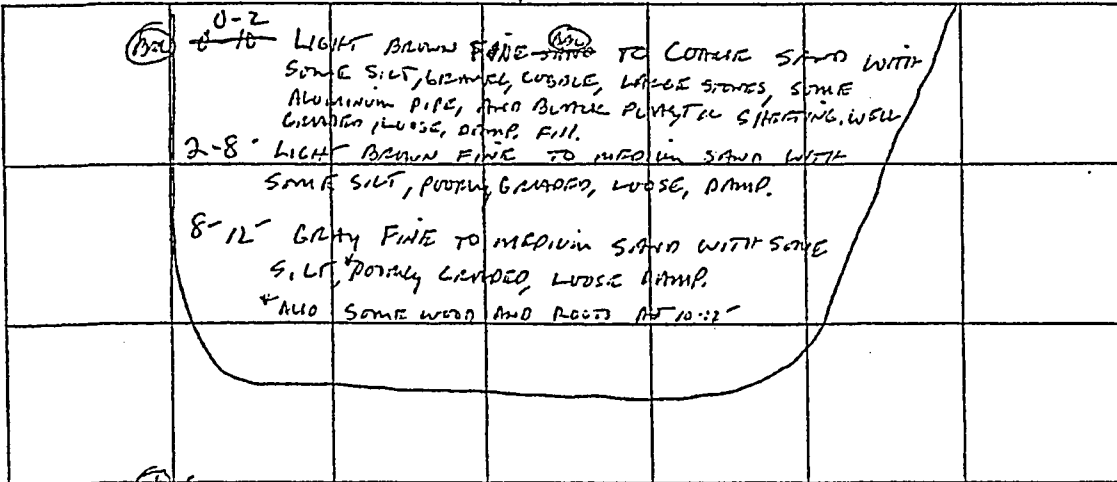 0-2
LIGHT BROWN FINE TO COARSE SAND WITH
SOME SILT, GRAVEL, COBBLE, LARGE STONES, SOME
ALUMINUM PIPE, AND BLACK PLASTIC SHEETING. WELL
GRADED, LOOSE, DAMP. FILL.
2-8' LIGHT BROWN FINE TO MEDIUM SAND WITH
SOME SILT, POORLY GRADED, LOOSE, DAMP.
8-12' GRAY FINE TO MEDIUM SAND WITH SOME
SILT,* POORLY GRADED, LOOSE DAMP.
*ALSO SOME WOOD AND ROOTS AT 10-12'